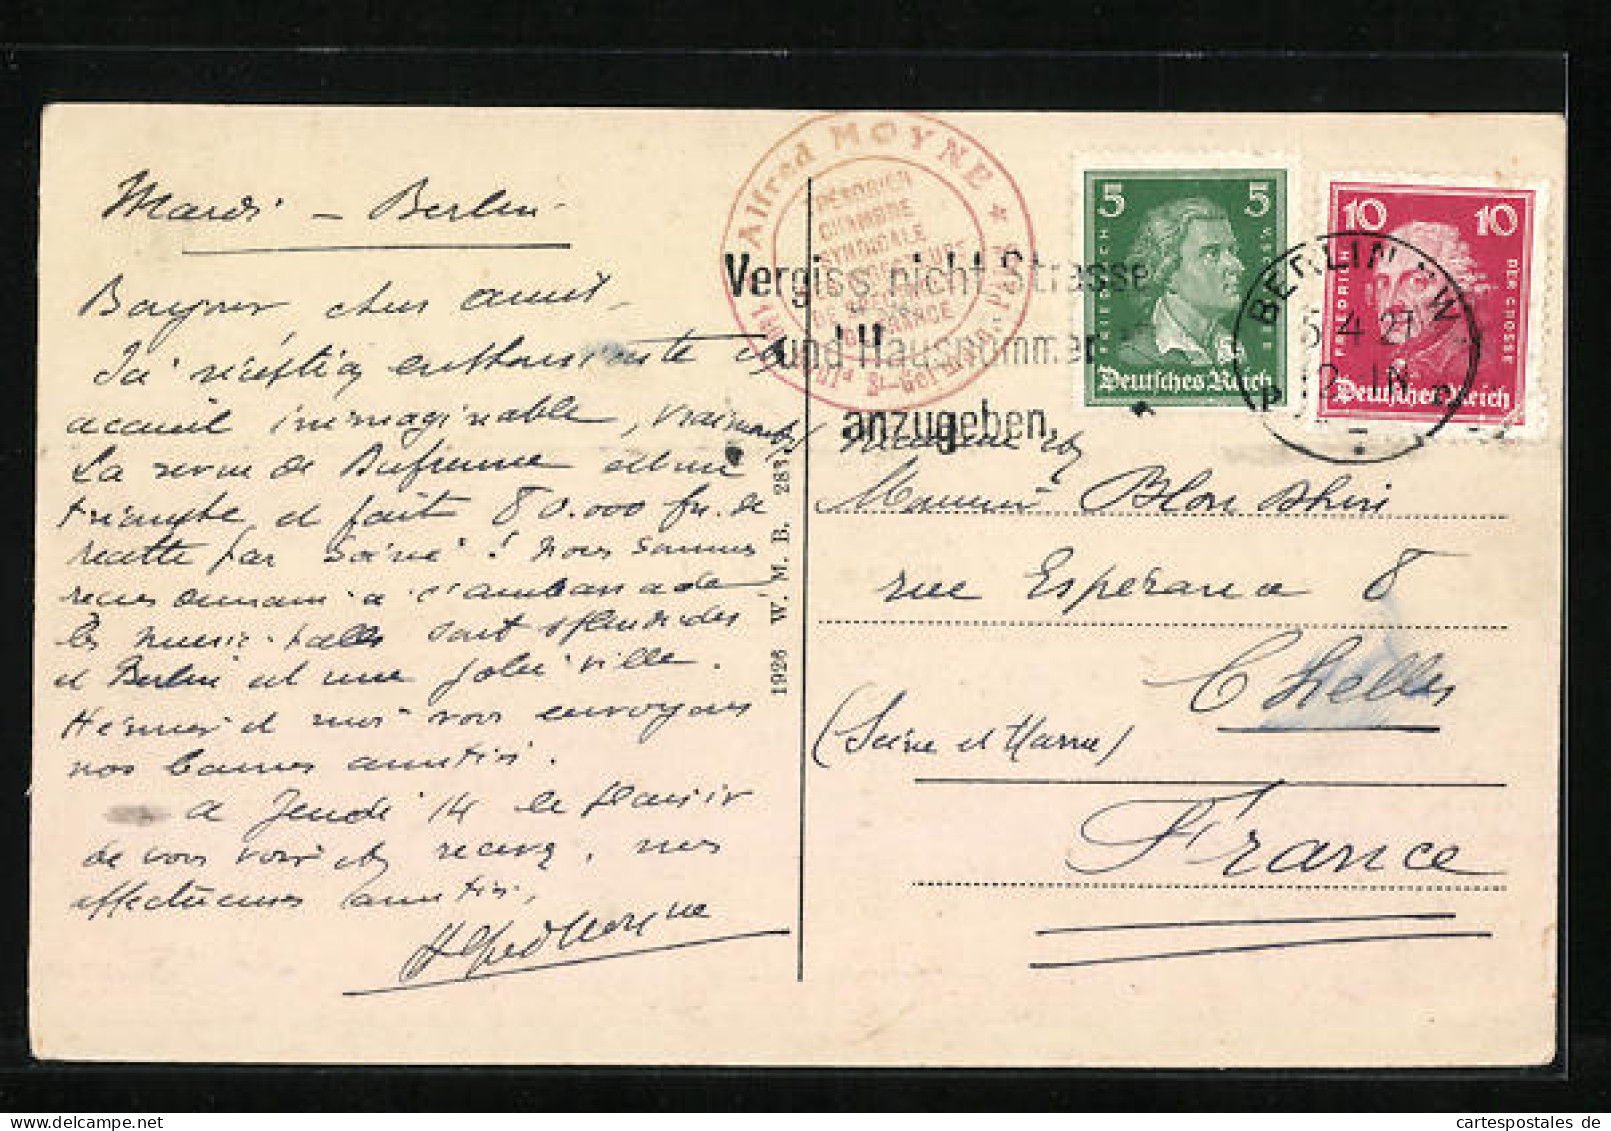 Mardi - Berlin -
Bonjour chers amis,
J'ai réception enthousiaste et
accueil inimaginable, vraiment,
La revue de Dufrenne est un
triomphe, et fait 80.000 frs. de
recette par soirée ! nous sommes
à l'ambassade
les music-halls sont splendides
et Berlin est une jolie ville.
et moi vous envoyons
nos bonnes amitiés.
a Jeudi 14 le plaisir
de vous voir et recevez, mes
affectueuses amitiés,
Alfred Moyne
1926 W. M. B. 283
Alfred MOYNE
CHAMBRE
SYNDICALE
DE FRANCE
Vergiss nicht Strasse
und Hausnummer
anzugeben.
5 5
FRIEDRICH
Deutsches Reich
10 10
FRIEDRICH DER GROSSE
Deutsches Reich
BERLIN W
5.4.27
12-1N
Madame et
Monsieur Blon Dhin
rue Espérance 8
Chelles
(Seine et Marne)
France
cartespostales de